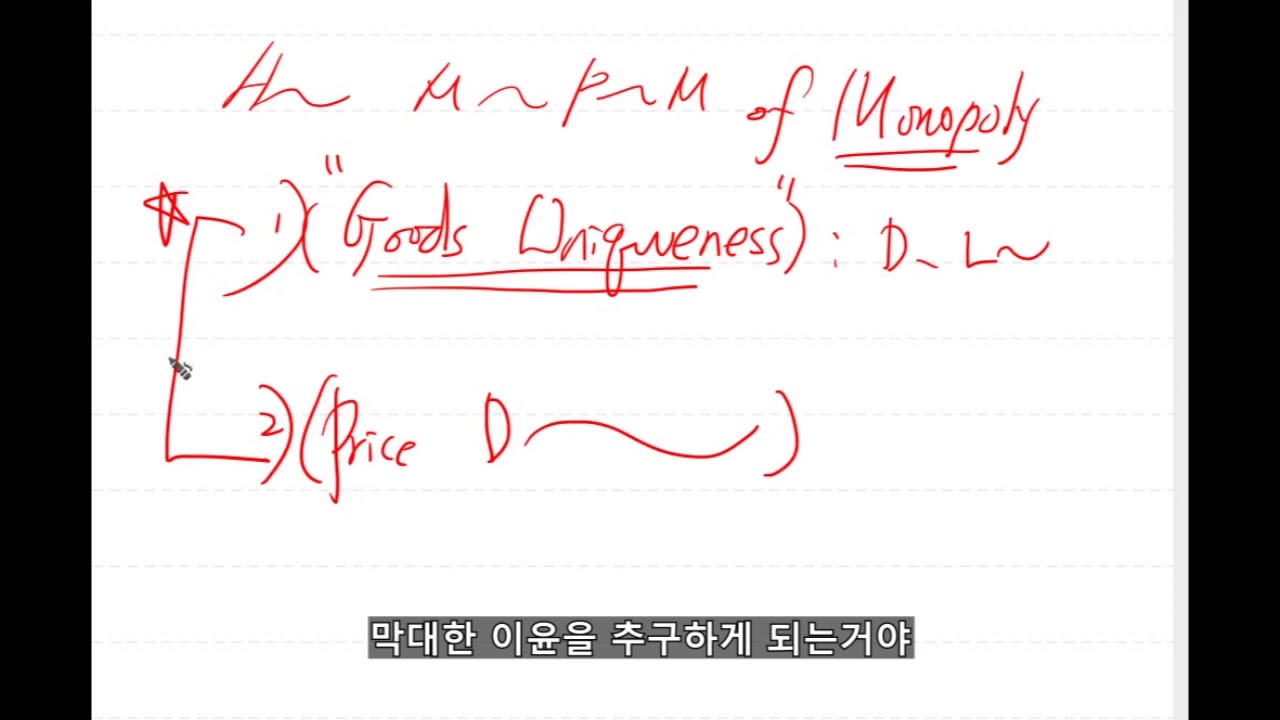 H~ M~P~M of Monopoly
1) ("Goods Uniqueness") : D~ L~
2) (Price D~)
막대한 이윤을 추구하게 되는거야